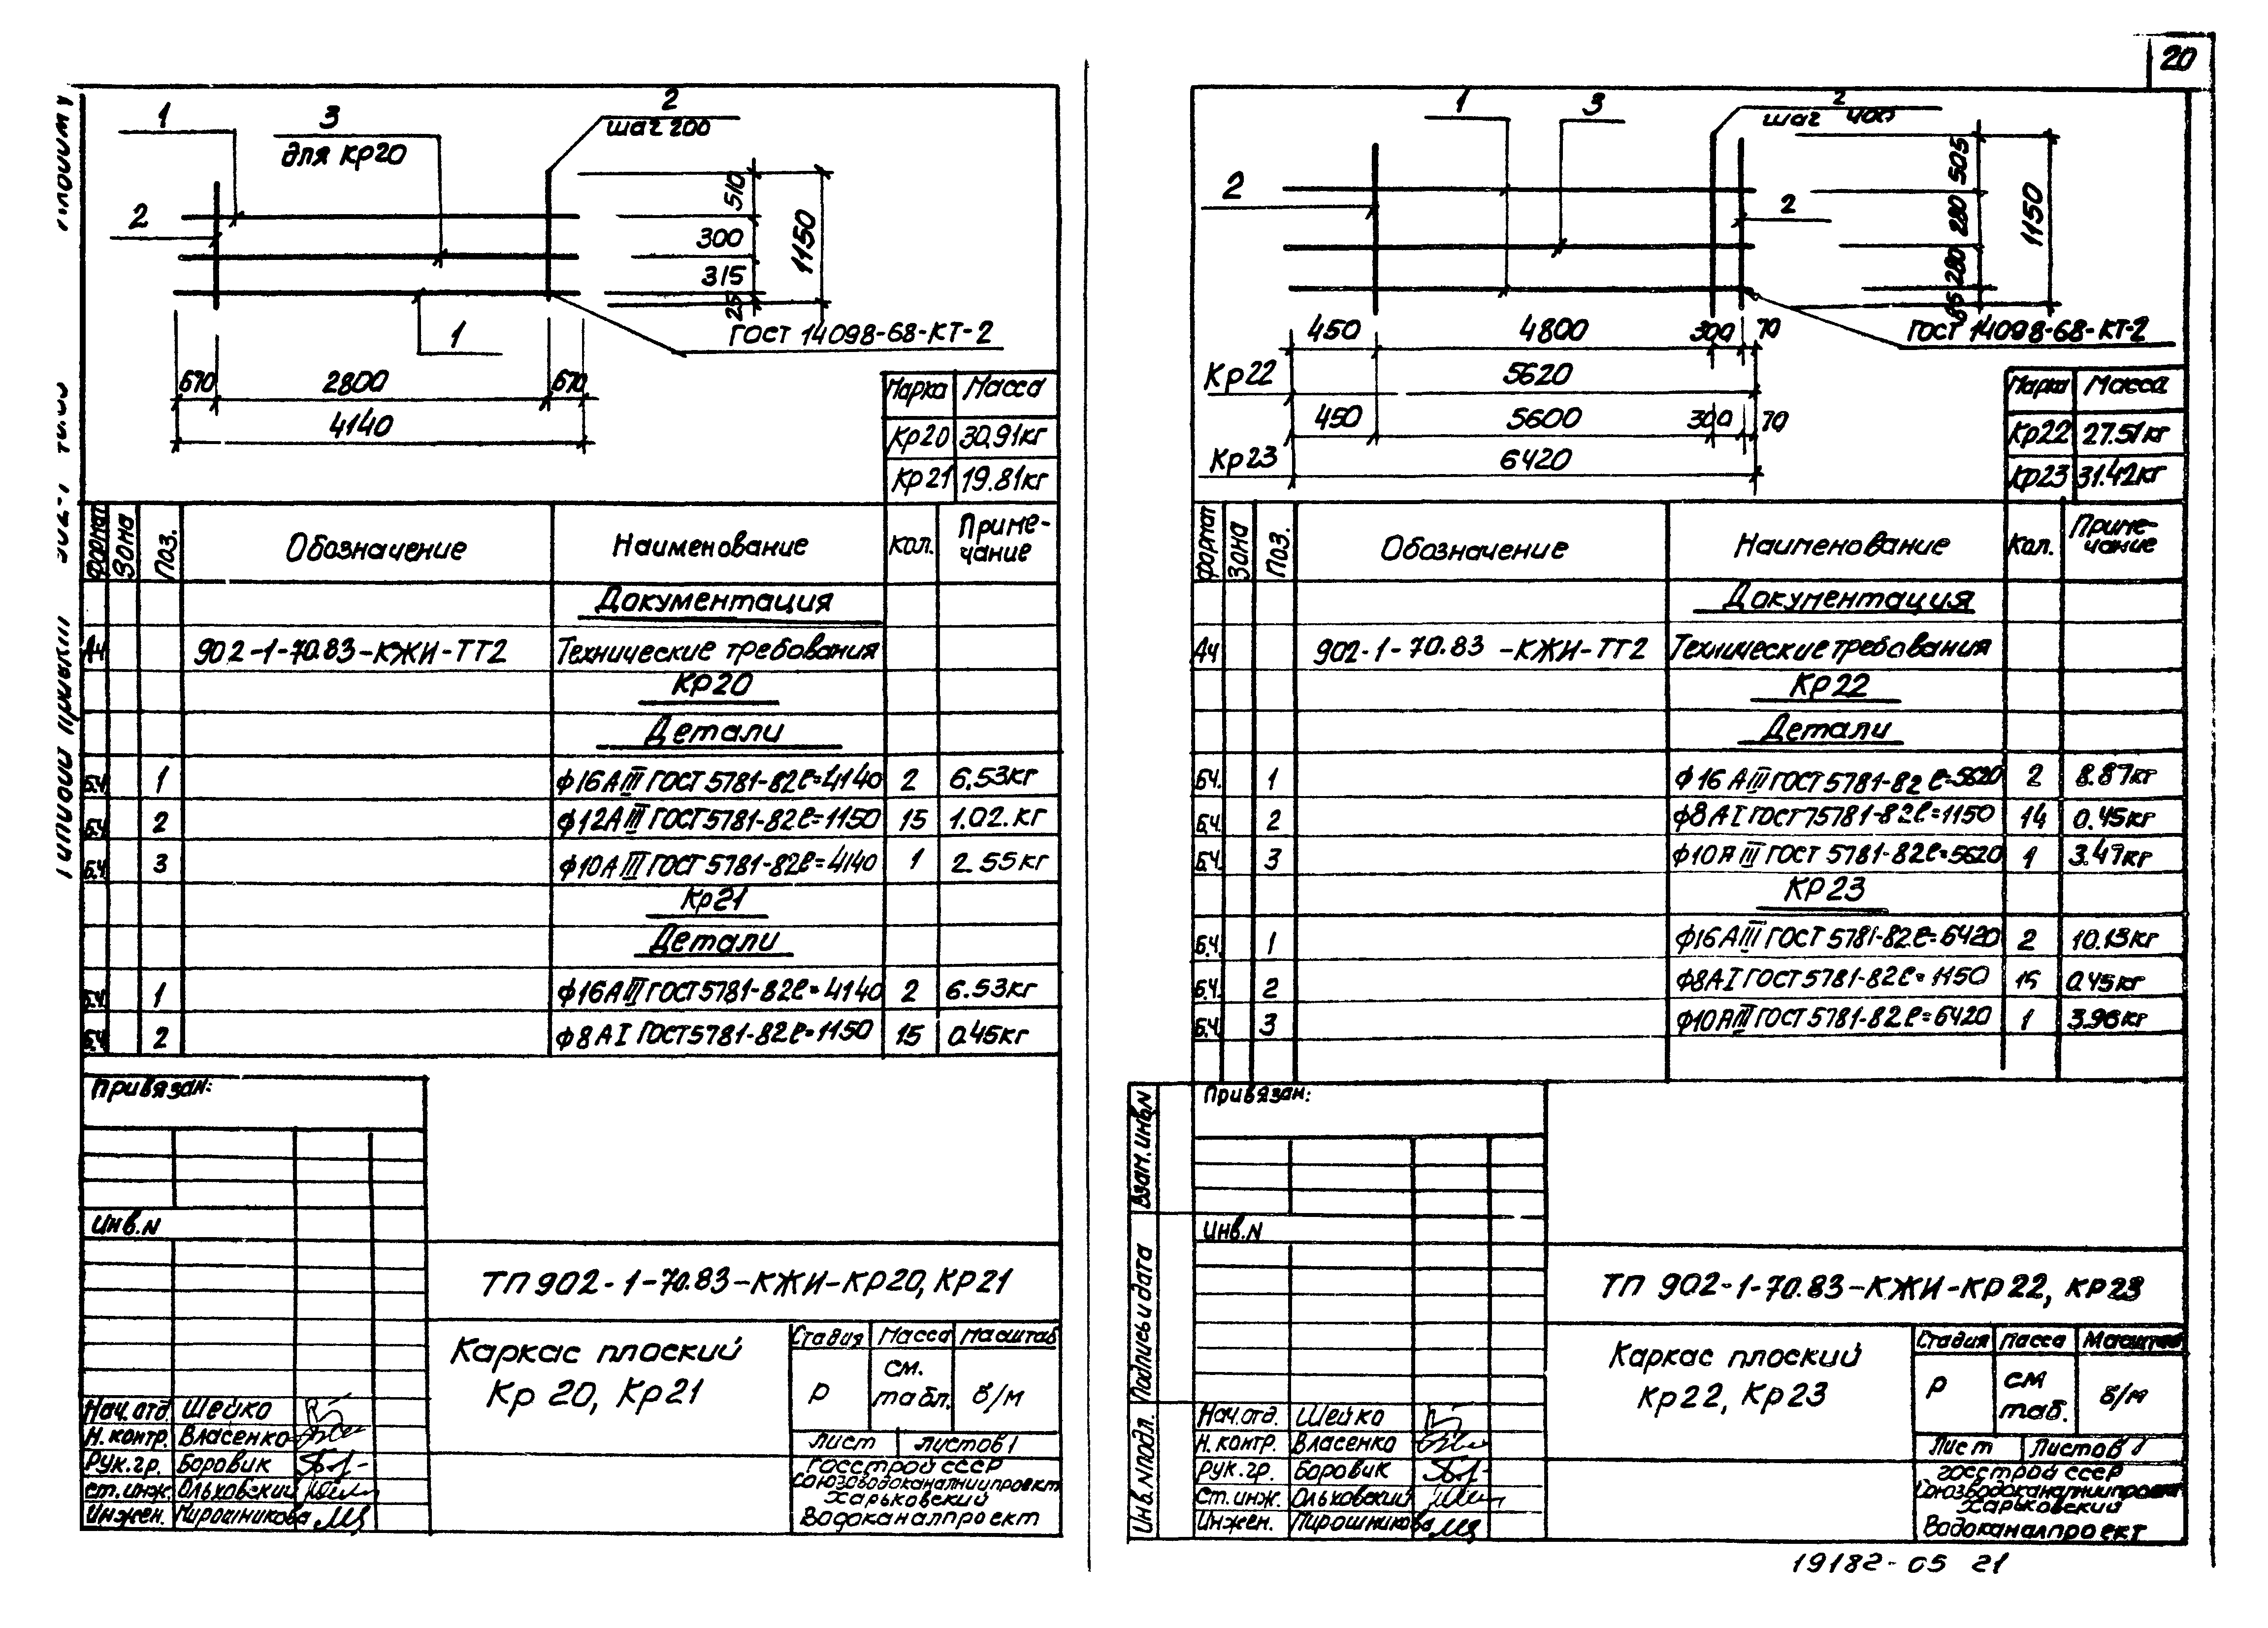 20
1
3
для Кр20
2
шаг 200
2
1
510
300
315
25
1150
ГОСТ 14098-68-КТ-2
670
2800
670
4140
Марка Масса
Кр20 30.91кг
Кр21 19.81кг
Формат Зона Поз. Обозначение Наименование Кол. Приме-
чание
Документация
А4 902-1-70.83-КЖИ-ТТ2 Технические требования
Кр20
Детали
Б.Ч. 1 ф16АIII ГОСТ 5781-82 ℓ=4140 2 6.53кг
Б.Ч. 2 ф12АIII ГОСТ 5781-82 ℓ=1150 15 1.02.кг
Б.Ч. 3 ф10АIII ГОСТ 5781-82 ℓ=4140 1 2.55кг
Кр21
Детали
Б.Ч. 1 ф16АIII ГОСТ 5781-82 ℓ=4140 2 6.53кг
Б.Ч. 2 ф8АI ГОСТ 5781-82 ℓ=1150 15 0.45кг
Привязан:
Инв.N
ТП 902-1-70.83-КЖИ-КР20, КР21
Каркас плоский
Кр 20, Кр21
Стадия Масса Масштаб
Р см.
табл. б/м
Лист Листов 1
Госстрой СССР
Союзводоканалниипроект
Харьковский
Водоканалпроект
Нач.отд. Шейко
Н.контр. Власенко
Рук.гр. Боровик
Ст.инж. Ольховский
Инжен. Мирошникова
1
3
2
шаг 400
2
2
505
280
280
85
1150
ГОСТ 14098-68-КТ-2
450 4800 300 70
Кр22 5620
450 5600 300 70
Кр23 6420
Марка Масса
Кр22 27.51кг
Кр23 31.42кг
Формат Зона Поз. Обозначение Наименование Кол. Приме-
чание
Документация
А4 902-1-70.83-КЖИ-ТТ2 Технические требования
Кр22
Детали
Б.Ч. 1 ф16АIII ГОСТ 5781-82 ℓ=5620 2 8.87кг
Б.Ч. 2 ф8АI ГОСТ75781-82 ℓ=1150 14 0.45кг
Б.Ч. 3 ф10АIII ГОСТ 5781-82 ℓ=5620 1 3.47кг
КР23
Б.Ч. 1 ф16АIII ГОСТ 5781-82 ℓ=6420 2 10.13кг
Б.Ч. 2 ф8АI ГОСТ 5781-82 ℓ=1150 15 0.45кг
Б.Ч. 3 ф10АIII ГОСТ 5781-82 ℓ=6420 1 3.96кг
Привязан:
Инв.N
Взам.инв.N
Подпись и дата
Инв.N подл.
ТП 902-1-70.83-КЖИ-КР22, КР23
Каркас плоский
Кр22, Кр23
Стадия Масса Масштаб
Р см
таб. б/м
Лист Листов 1
Госстрой СССР
Союзводоканалниипроект
Харьковский
Водоканалпроект
Нач.отд. Шейко
Н.контр. Власенко
Рук.гр. Боровик
Ст.инж. Ольховский
Инжен. Мирошникова
19182-05 21